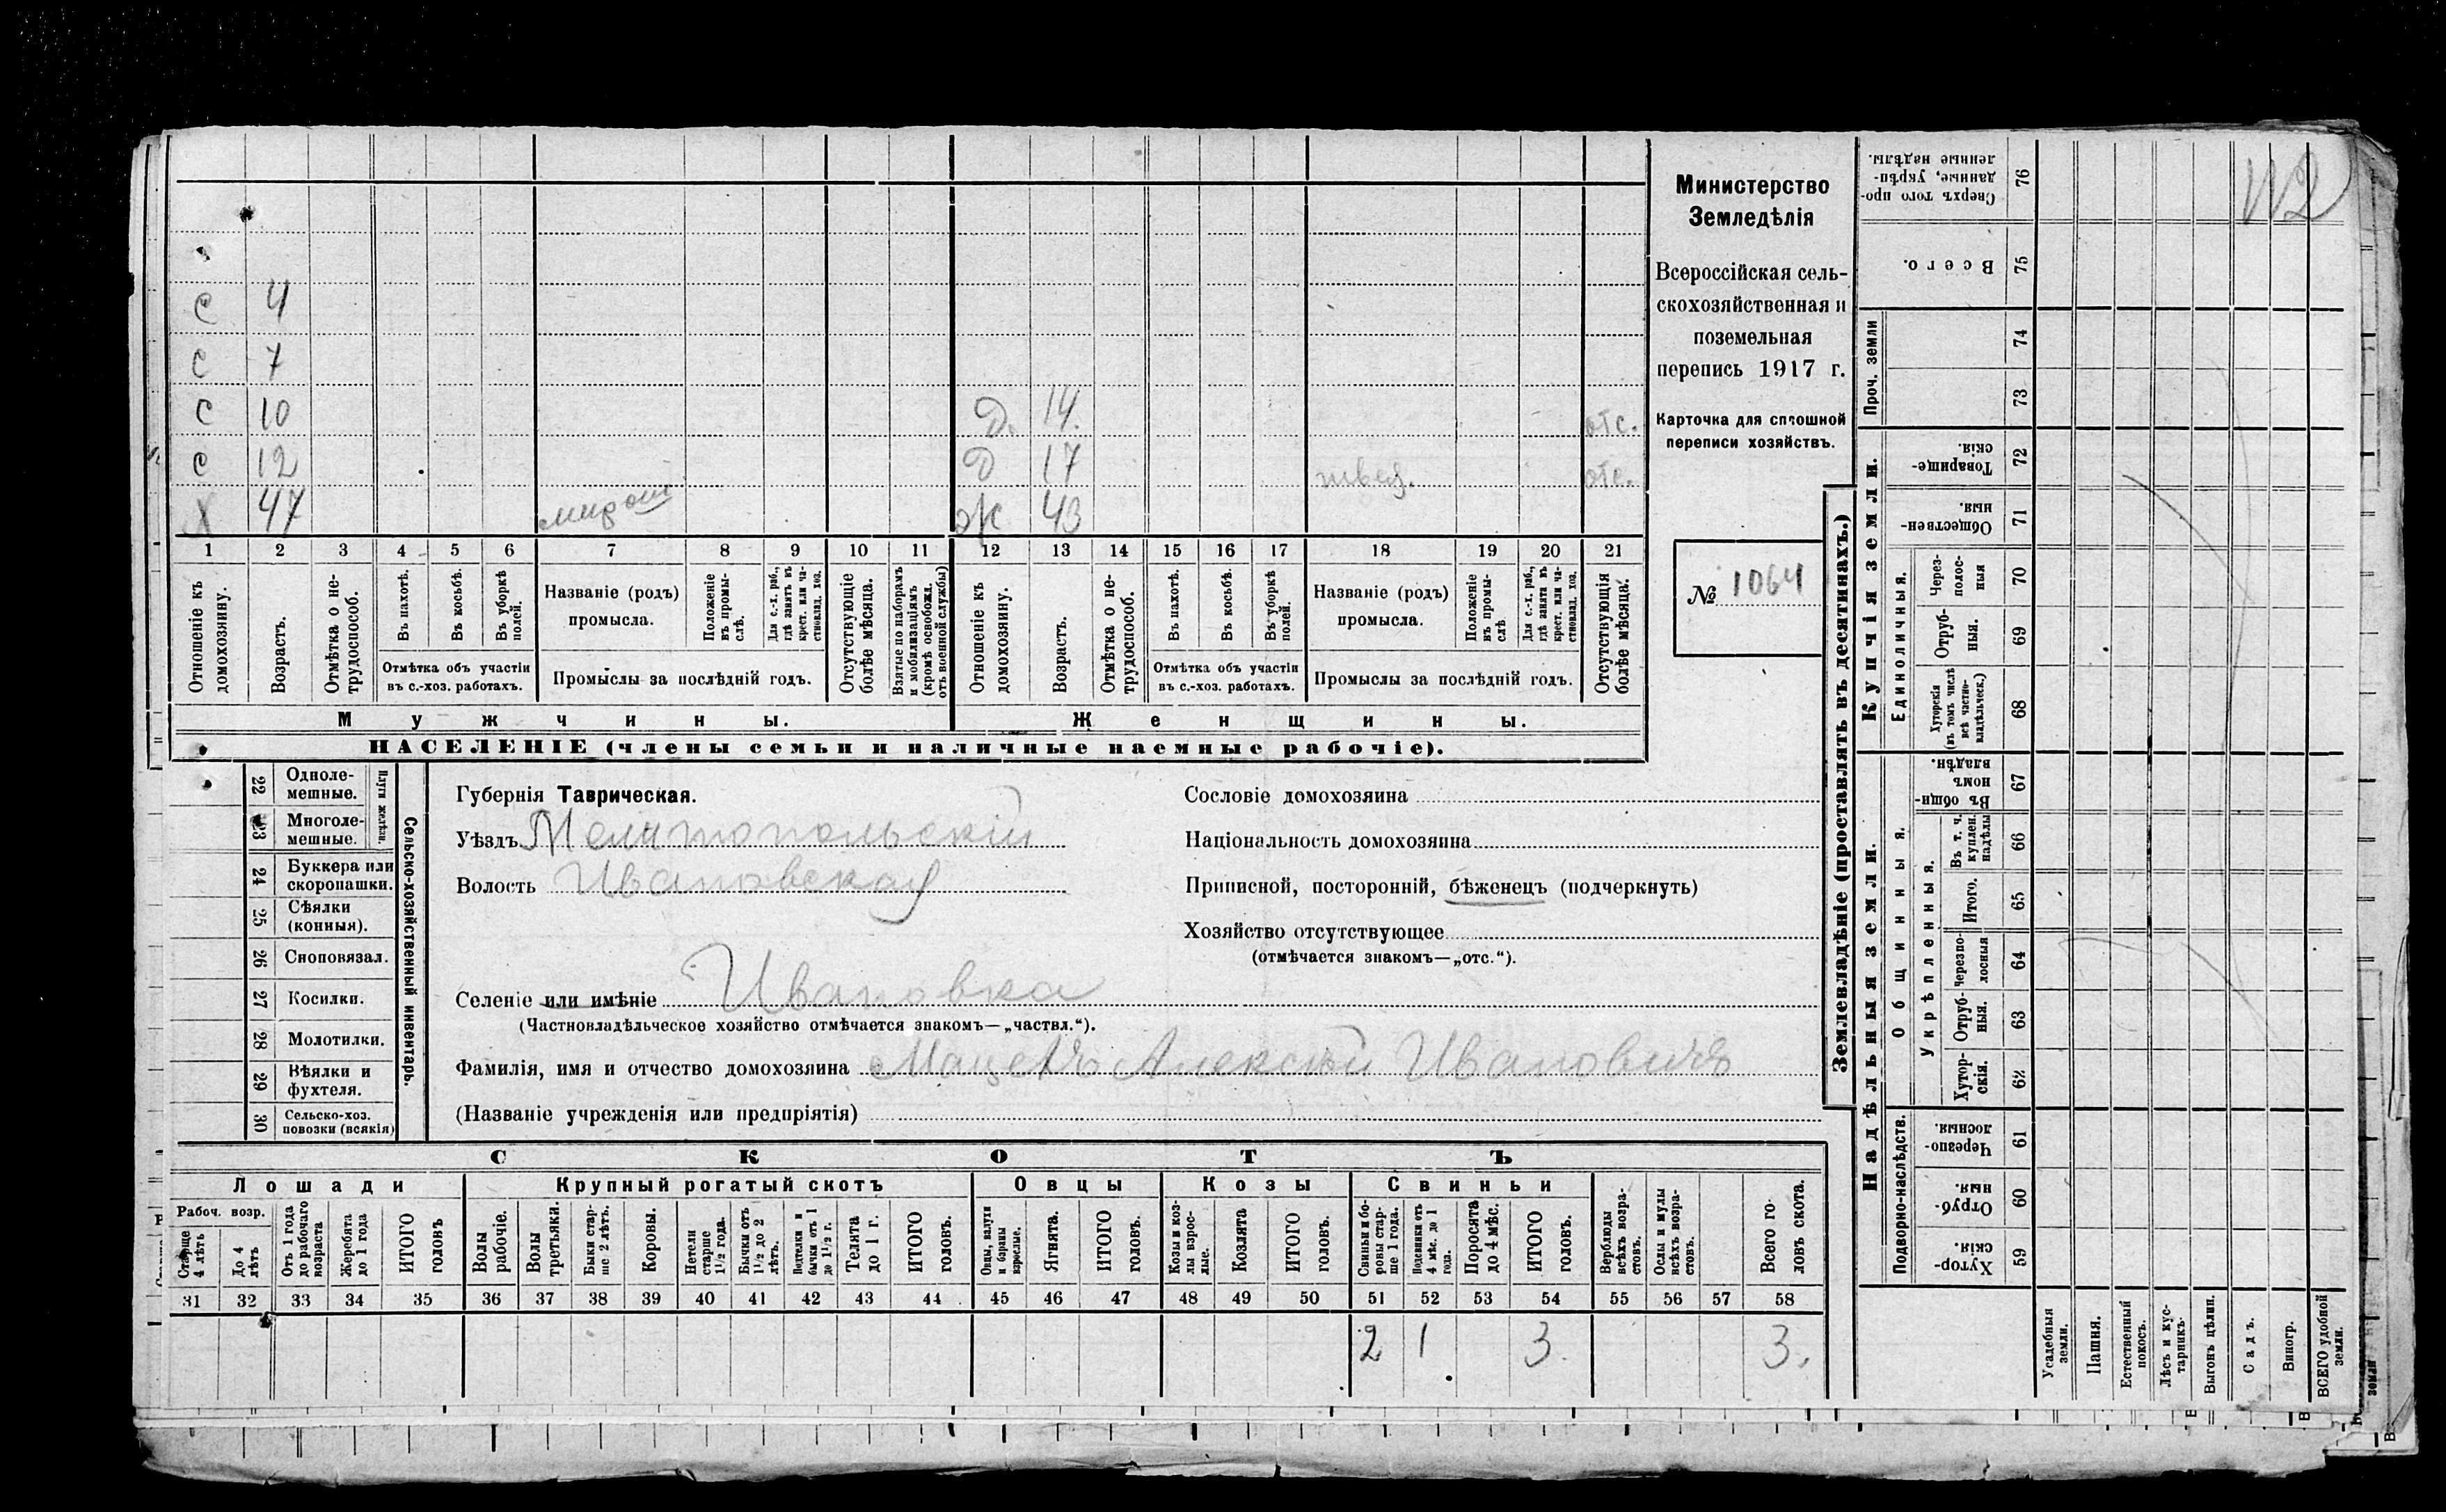 С 4
С 7
С 10 Д. 14. отс.
С 12 Д 17 швея. отс.
Х 47 Ж 43
1 2 3 4 5 6 7 8 9 10 11 12 13 14 15 16 17 18 19 20 21
Отношеніе къ домохозяину.
Возрастъ.
Отмѣтка о не-трудоспособ.
Въ пахотѣ.
Въ косьбѣ.
Въ уборкѣ полей.
Отмѣтка объ участіи
въ с.-хоз. работахъ.
Названіе (родъ)
промысла.
Положеніе въ промы-слѣ.
Для с.-х. раб., гдѣ занятъ въ крест. или ча-стновлад. хоз.
Промыслы за послѣдній годъ.
Отсутствующіе болѣе мѣсяца.
Взятые по наборамъ и мобилизаціямъ (кромѣ освобожд. отъ военной службы)
Отношеніе къ домохозяину.
Возрастъ.
Отмѣтка о не-трудоспособ.
Въ пахотѣ.
Въ косьбѣ.
Въ уборкѣ полей.
Отмѣтка объ участіи
въ с.-хоз. работахъ.
Названіе (родъ)
промысла.
Положеніе въ промы-слѣ
Для с.-х. раб., гдѣ занята въ крест. или ча-стновлад. хоз.
Промыслы за послѣдній годъ.
Отсутствующія болѣе мѣсяца.
Мужчины. Женщины.
НАСЕЛЕНІЕ (члены семьи и наличные наемные рабочіе).
Министерство
Земледѣлія
Всероссійская сель-
скохозяйственная и
поземельная
перепись 1917 г.
Карточка для сплошной
переписи хозяйствъ.
№ 1064
Сельско-хозяйственный инвентарь.
Плуги желѣзн.
22 Одноле-
мешные.
23 Многоле-
мешные.
24 Буккера или
скоропашки.
25 Сѣялки
(конныя).
26 Сноповязал.
27 Косилки.
28 Молотилки.
29 Вѣялки и
фухтеля.
30 Сельско-хоз.
повозки (всякія)
Губернія Таврическая.
Уѣздъ Мелитопольскій
Волость Ивановская
Сословіе домохозяина
Національность домохозяина
Приписной, посторонній, бѣженецъ (подчеркнуть)
Хозяйство отсутствующее
(отмѣчается знакомъ—„отс.“).
Селеніе или имѣніе Ивановка
(Частновладѣльческое хозяйство отмѣчается знакомъ—„частвл.“).
Фамилія, имя и отчество домохозяина Алексѣй Ивановичъ
(Названіе учрежденія или предпріятія)
СКОТЪ
Лошади Крупный рогатый скотъ Овцы Козы Свиньи
Рабоч. возр.
Старше 4 лѣтъ
До 4 лѣтъ
Отъ 1 года до рабочаго возраста
Жеребята до 1 года
ИТОГО головъ
Волы рабочіе.
Волы третьяки.
Быки стар-ше 2 лѣтъ.
Коровы.
Нетели старше 1½ года.
Бычки отъ 1½ до 2 лѣтъ.
Подтелки и бычки отъ 1 до 1½ г.
Телята до 1 г.
ИТОГО головъ.
Овцы, валухи и бараны взрослые.
Ягнята.
ИТОГО головъ.
Козы и коз-лы взрос-лые.
Козлята
ИТОГО головъ.
Свиньи и бо-ровы стар-ше 1 года.
Подсвинки отъ 4 мѣс. до 1 года.
Поросята до 4 мѣс.
ИТОГО головъ.
Верблюды всѣхъ возра-стовъ.
Ослы и мулы всѣхъ возра-стовъ.
Всего го-ловъ скота.
31 32 33 34 35 36 37 38 39 40 41 42 43 44 45 46 47 48 49 50 51 52 53 54 55 56 57 58
2 1 3. 3.
Землевладѣніе (проставлять въ десятинахъ.)
Надѣльныя земли.
Купчія земли.
Проч. земли
Сверхъ того про-данные, укрѣп-ленные надѣлы. 76
Всего. 75
74
73
Товарище-скія 72
Обществен-ныя. 71
Единоличныя.
Через-полос-ныя 70
Отруб-ныя. 69
Хуторскія (въ томъ числѣ всѣ частно-владѣльческ.) 68
Въ общин-номъ владѣн. 67
Общинныя.
Укрѣпленныя.
Въ т. ч. куплен. надѣлы 66
Итого. 65
Черезпо-лосныя 64
Отруб-ныя. 63
Хутор-скія. 62
Подворно-наслѣдств.
Черезпо-лосныя. 61
Отруб-ныя. 60
Хутор-скія. 59
Усадебныя земли.
Пашня.
Естественный покосъ.
Лѣсъ и кус-тарникъ.
Выгонъ цѣлин.
Садъ.
Виногр.
ВСЕГО удобной земли.